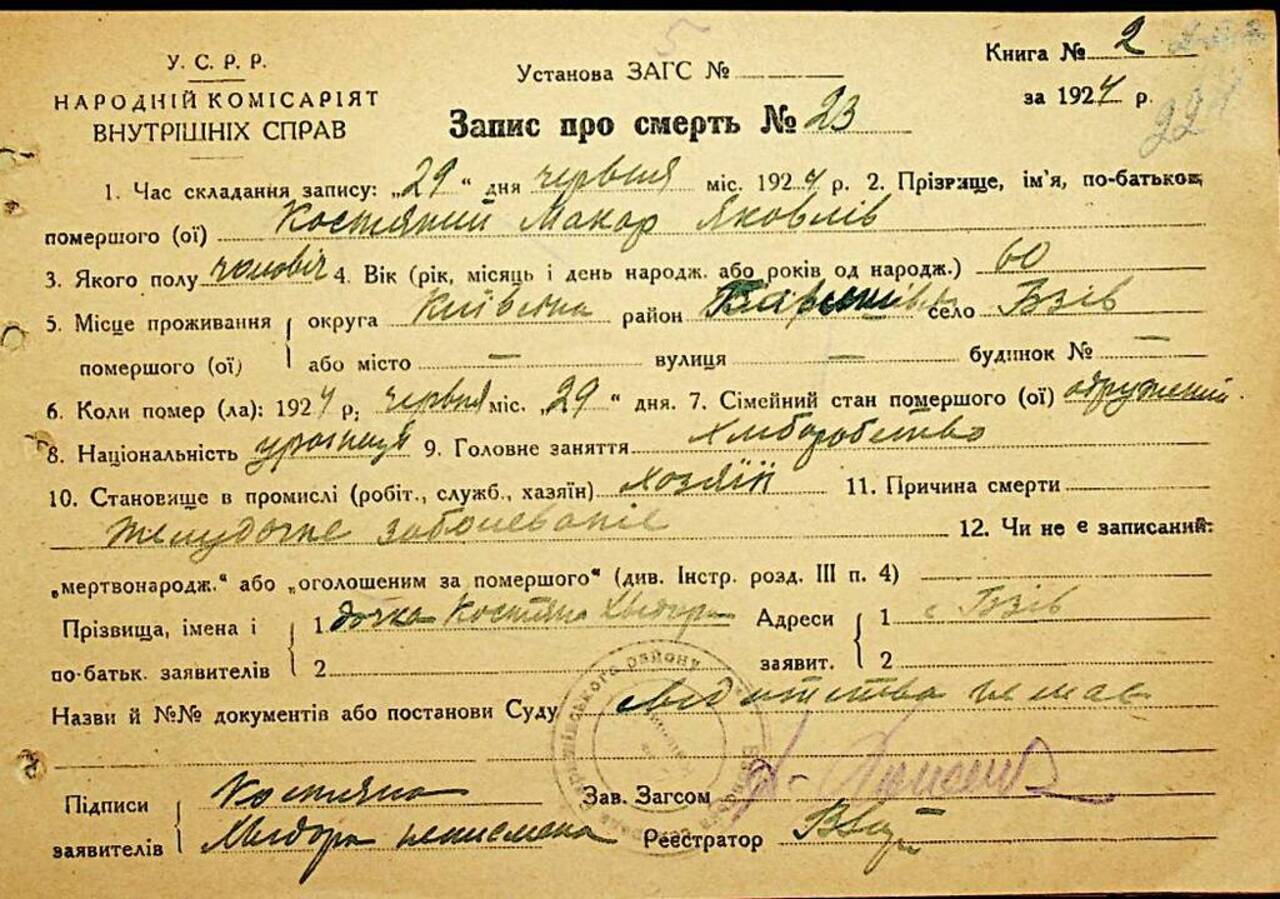 5
Книга № 2
У. С. Р. Р.
Установа ЗАГС №
НАРОДНІЙ КОМІСАРІЯТ
за 1924 р.
ВНУТРІШНІХ СПРАВ
Запис про смерть № 23
224
1. Час складання запису: „29“ дня червня міс. 1924 р. 2. Прізвище, ім'я, по-батькові
помершого (ої) Костяний Макар Яковлів
3. Якого полу чоловіч 4. Вік (рік, місяць і день народж. або років од народж.) 60
5. Місце проживання округа Київська район Баришівс село Бзів
помершого (ої) або місто — вулиця — будинок № —
6. Коли помер (ла): 1924 р. червня міс. „29“ дня. 7. Сімейний стан помершого (ої) одружений.
8. Національність 9. Головне заняття Хлиборобство
10. Становище в промислі (робіт., служб., хазяїн) хозяїн 11. Причина смерти
желудочне заболеваніе 12. Чи не є записаний:
„мертвонародж.“ або „оголошеним за помершого“ (див. Інстр. розд. III п. 4)
Прізвища, імена і 1 дочка Костяна Хведора Адреси 1 с Бзів
по-батьк. заявителів 2 заявит. 2
Назви й №№ документів або постанови Суду немає
Підписи Костяна Зав. Загсом
заявителів Хведора неписмена Реєстратор